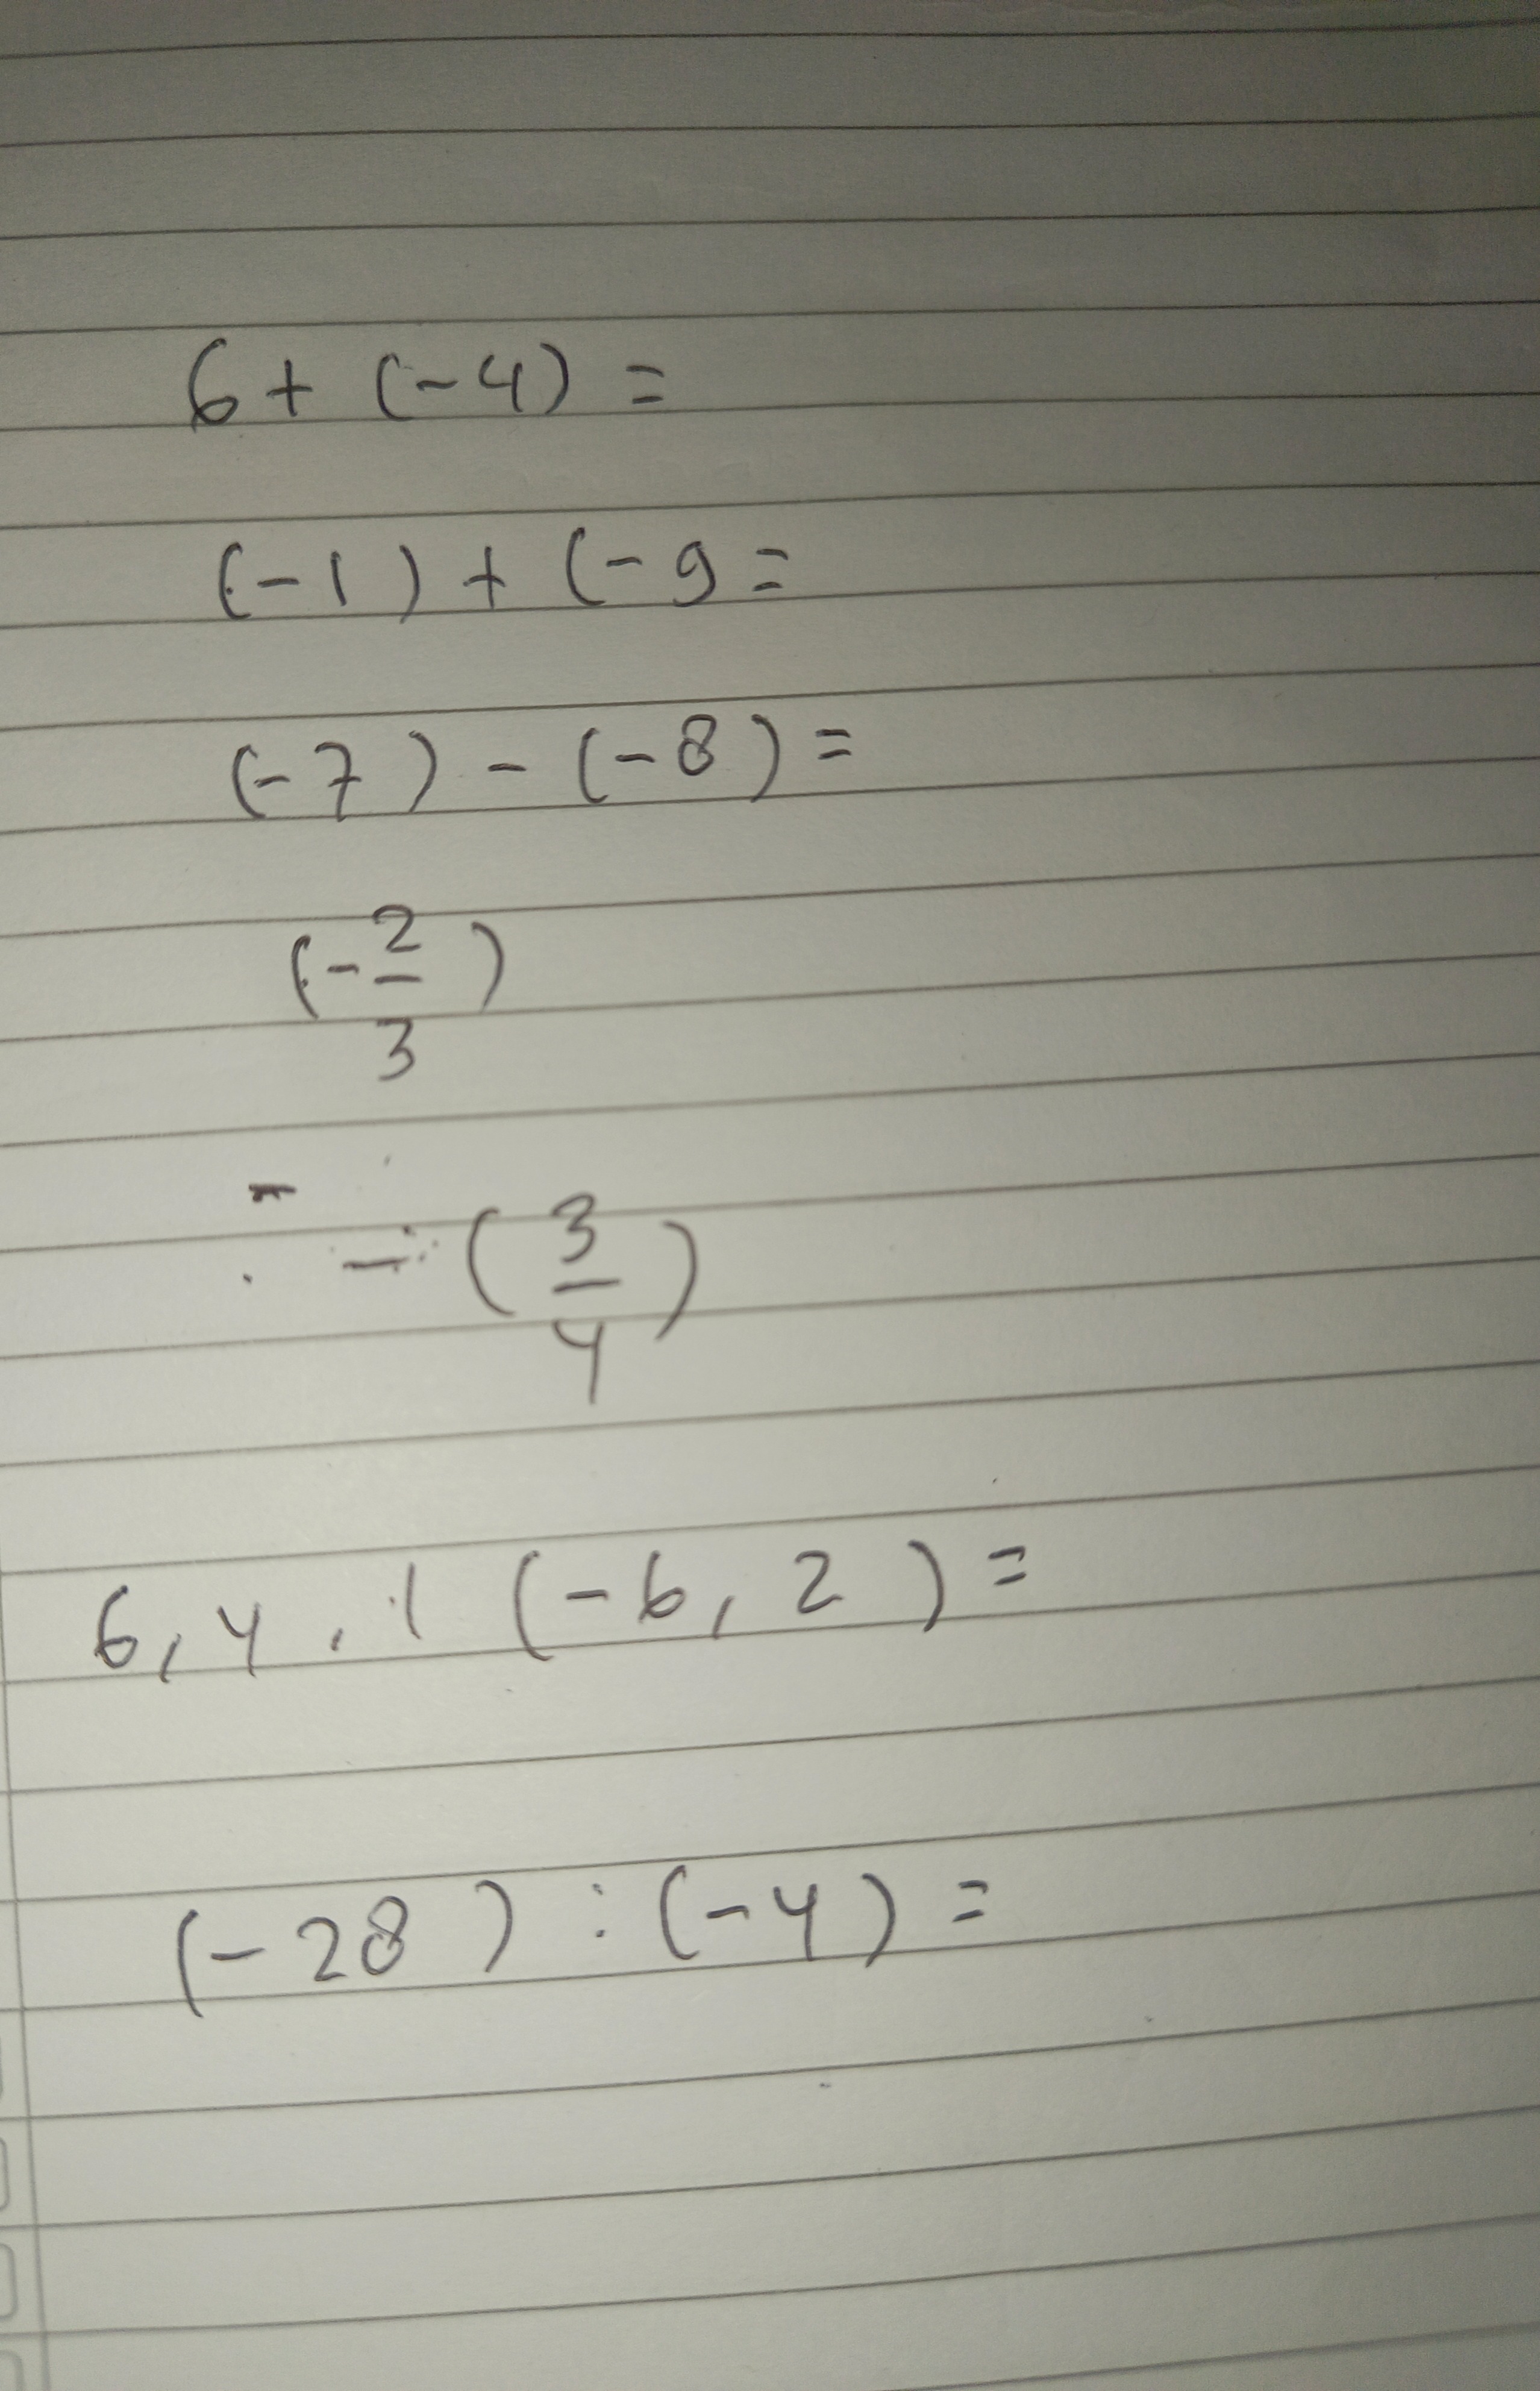 6 + (-4) =
(-1) + (-9 =
(-7) - (-8) =
(-2/3)
- (3/4)
6,4 . 1 (-6,2) =
(-28) : (-4) =